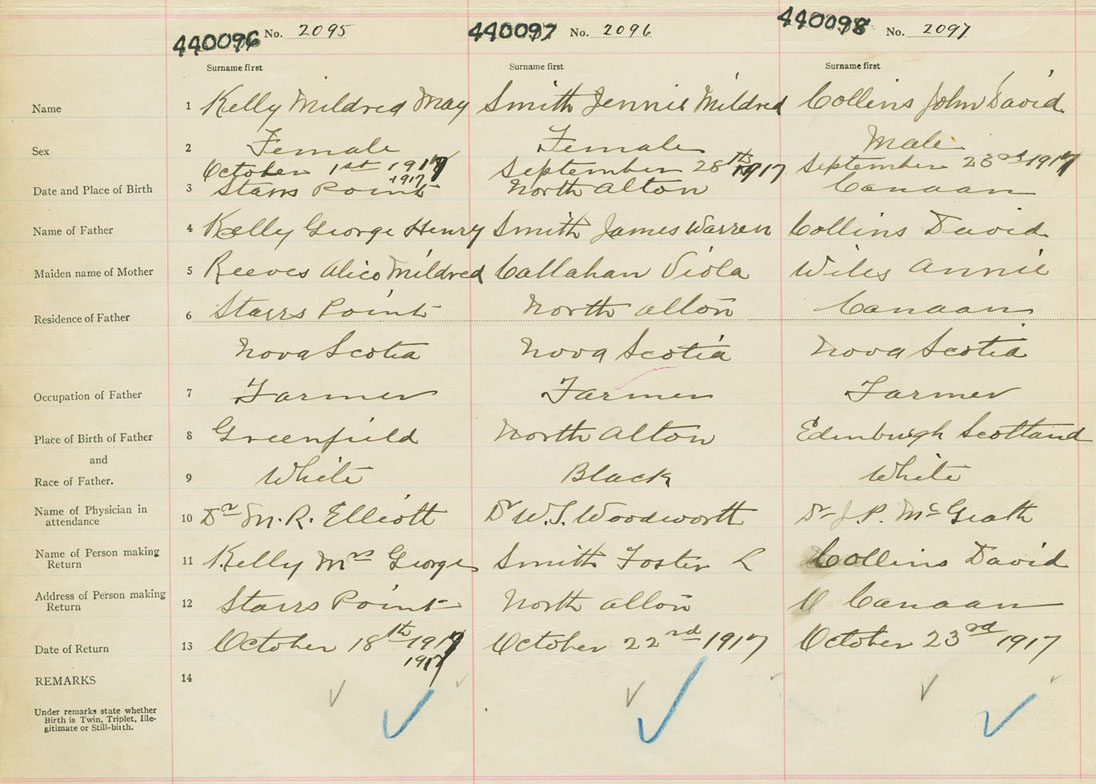 440096 No. 2095 440097 No. 2096 440098 No. 2097
Surname first Surname first Surname first
Name 1 Kelly Mildred May Smith Jennie Mildred Collins John David
Sex 2 Female Female Male
October 1st 1917 September 28th 1917 September 23rd 1917
1917
Date and Place of Birth 3 Starrs Point North Alton Canaan
Name of Father 4 Kelly George Henry Smith James Warren Collins David
Maiden name of Mother 5 Reeves Alice Mildred Callahan Viola Wiles Annie
Residence of Father 6 Starrs Point North Alton Canaan
Nova Scotia Nova Scotia Nova Scotia
Occupation of Father 7 Farmer Farmer Farmer
Place of Birth of Father 8 Greenfield North Alton Edinburgh Scotland
and
Race of Father. 9 White Black White
Name of Physician in
attendance 10 Dr M. R. Elliott Dr W. S. Woodworth Dr J. P. McGrath
Name of Person making
Return 11 Kelly Mrs George Smith Foster L Collins David
Address of Person making
Return 12 Starrs Point North Alton Canaan
Date of Return 13 October 18th 1917 October 22nd 1917 October 23rd 1917
1917
REMARKS 14
Under remarks state whether
Birth is Twin, Triplet, Ille-
gitimate or Still-birth.